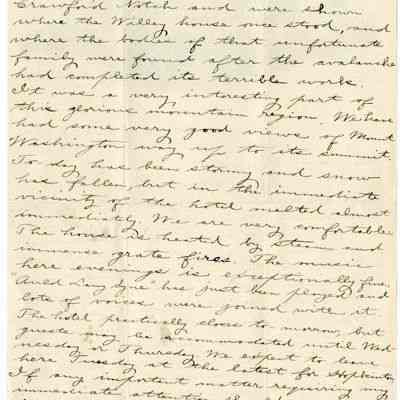 Crawford Notch and were shown
where the Willey house once stood, and
where the bodies of that unfortunate
family were found after the avalanche
had completed its terrible work.
It was a very interesting part of
this glorious mountain region. We have
had some very good views of Mount
Washington way up to its summit.
To day has been stormy and snow
has fallen, but in the immediate
vicinity of the hotel melted almost
immediately. We are very comfortable
The house is heated by steam and
immense grate fires. The music
here evenings is exceptionally fine.
Auld Lang Syne has just been played and
lots of voices were joined with it
The hotel practically closes to-morrow, but
guests may be accommodated until Wed-
nesday or Thursday. We expect to leave
here Tuesday at the latest for Hopkinton
If any important matter requiring my
immediate attention